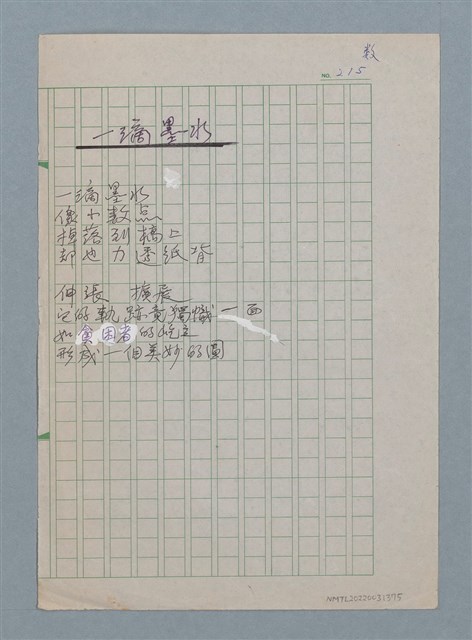 数
NO. 215
一滴墨水
一滴墨水
像小数点
掉落到稿上
却也力透紙背
伸張 擴展
它的軌跡竟獨幟一面
如貧困者的屹立
形成一個美妙的圓
NMTL20220031375